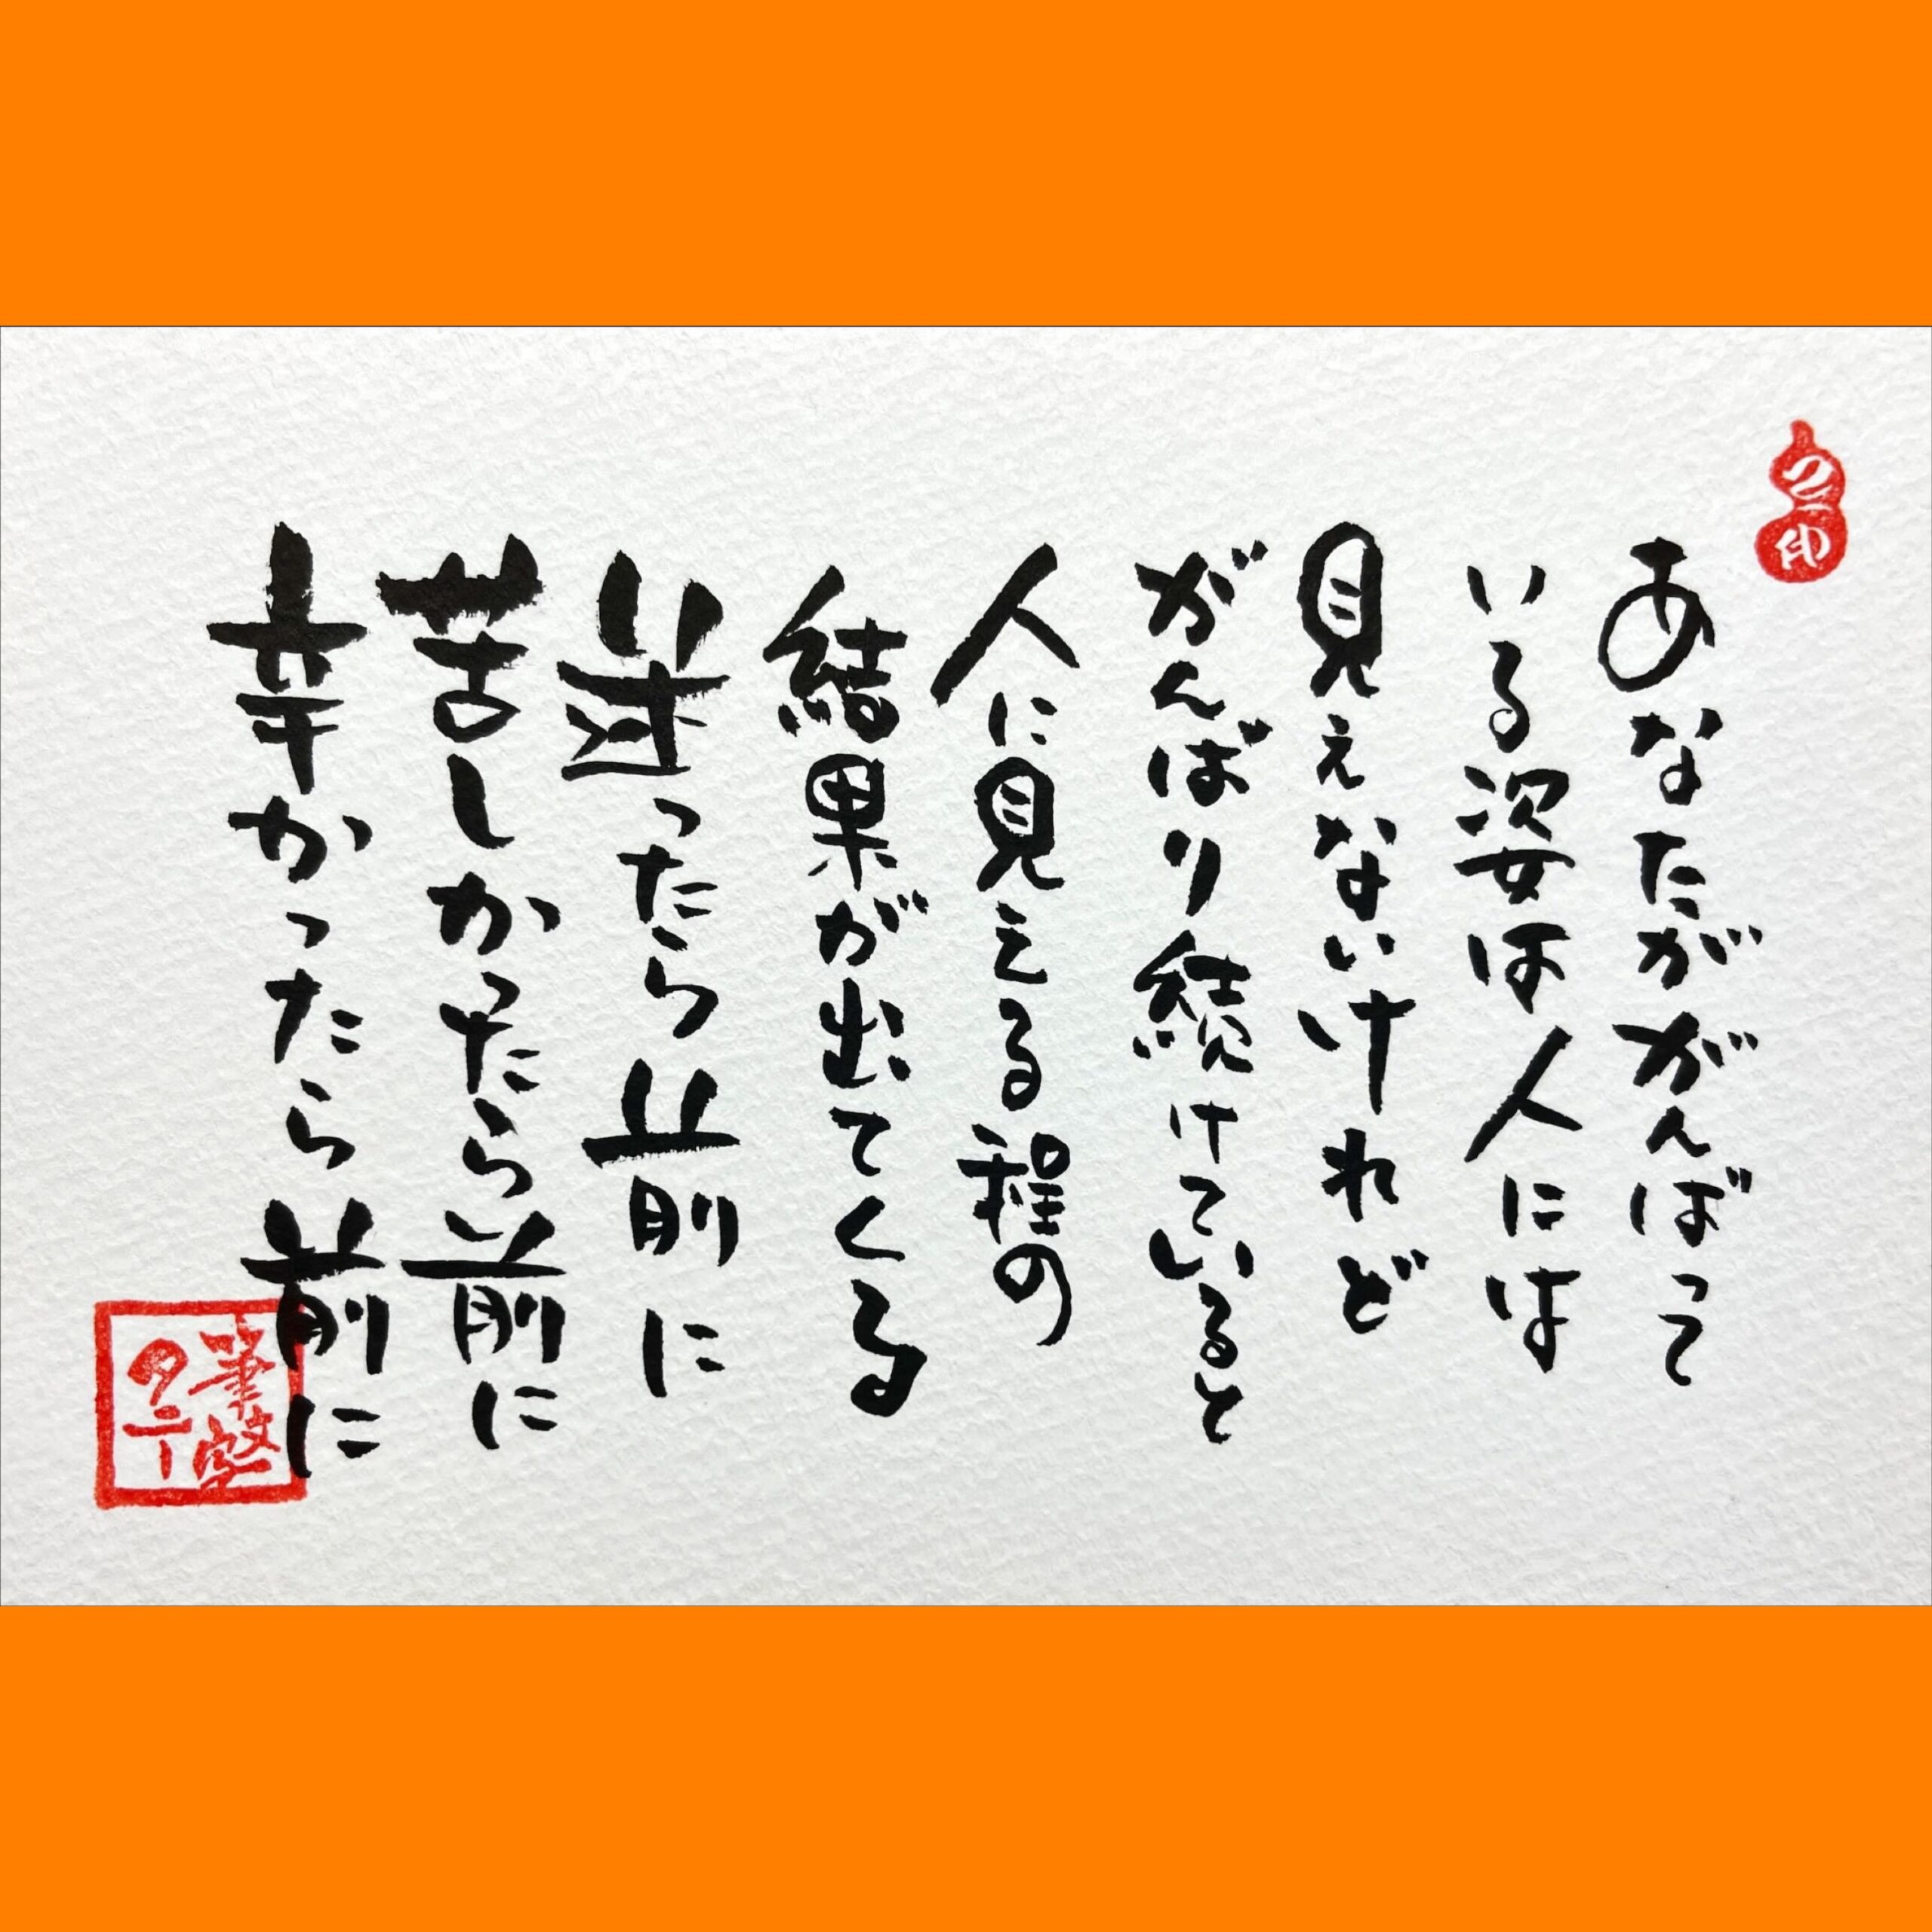 あなたががんばって
いる姿は人には
見えないけれど
がんばり続けていると
人に見える程の
結果が出てくる
迷ったら前に
苦しかったら前に
辛かったら前に
筆文字